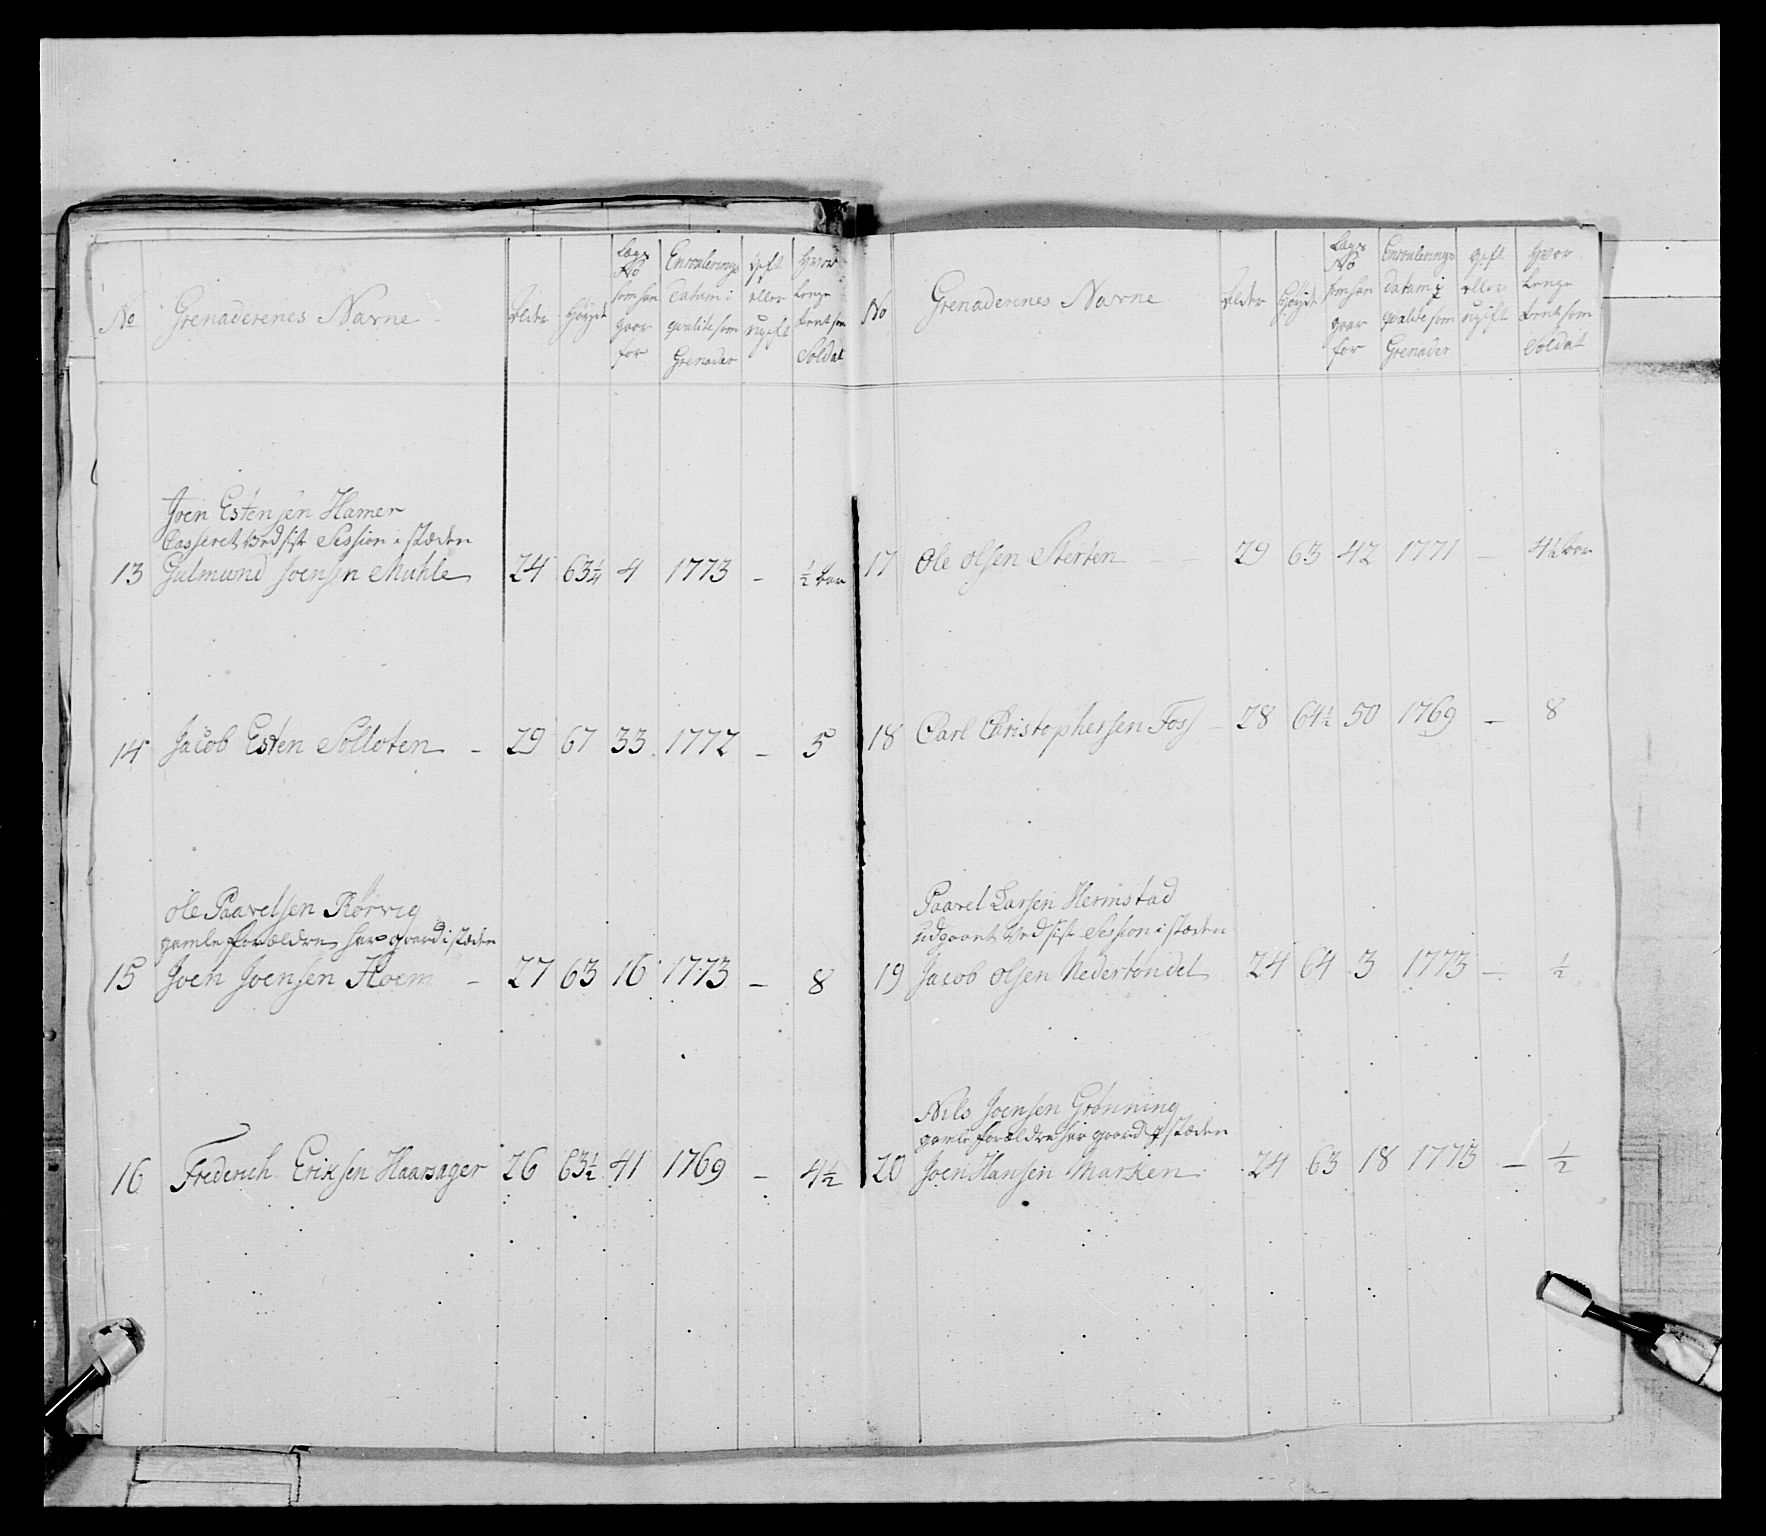 No Grenaderenes Navne Alder Høyde Lægs No som han gaar for Enroulerings datum i qvalite som Grenader gift eller ugift Hvor lenge tient som Soldat
Joen Estensen Hamer
Casseret ved sist Session i stæden
13 Gulmund Joensen Muhle 24 63¼ 4 1773 - ½ aar
14 Jacob Esten Solloten - 29 67 33 1772 - 5
Ole Paavelsen Rørvig
gamle forældre har gaard i stæden
15 Joen Joensen Hoem - 27 63 16 1773 - 8
16 Frederich Eriksen Haarsager 26 63½ 41 1769 - 4½
No Grenaderenes Navne Alder Høyde Lægs No som han gaar for Enroulerings datum i qvalite som Grenader gift eller ugift Hvor lenge tient som Soldat
17 Ole Olsen Sterten - - 29 63 42 1771 - 4½ aar
18 Carl Christophersen Foss - 28 64½ 50 1769 - 8
Paavel Larsen Hermstad
udgaaet ved sist Session i stæden
19 Jacob Olsen Nedertøndel 24 64 3 1773 - ½
Nils Joensen Grønning
gamle forældre har gaard i stæden
20 Joen Hansen Marken 24 63 18 1773 - ½